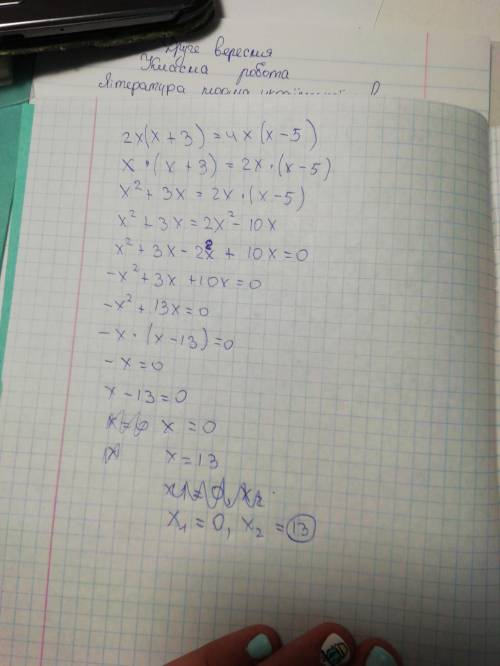 Друге вересня
Класна робота
Література
2x(x+3)=4x(x-5)
x·(x+3)=2x·(x-5)
x²+3x=2x·(x-5)
x²+3x=2x²-10x
x²+3x-2x²+10x=0
-x²+3x+10x=0
-x²+13x=0
-x·(x-13)=0
-x=0
x-13=0
x=0
x=13
x₁=0, x₂=13